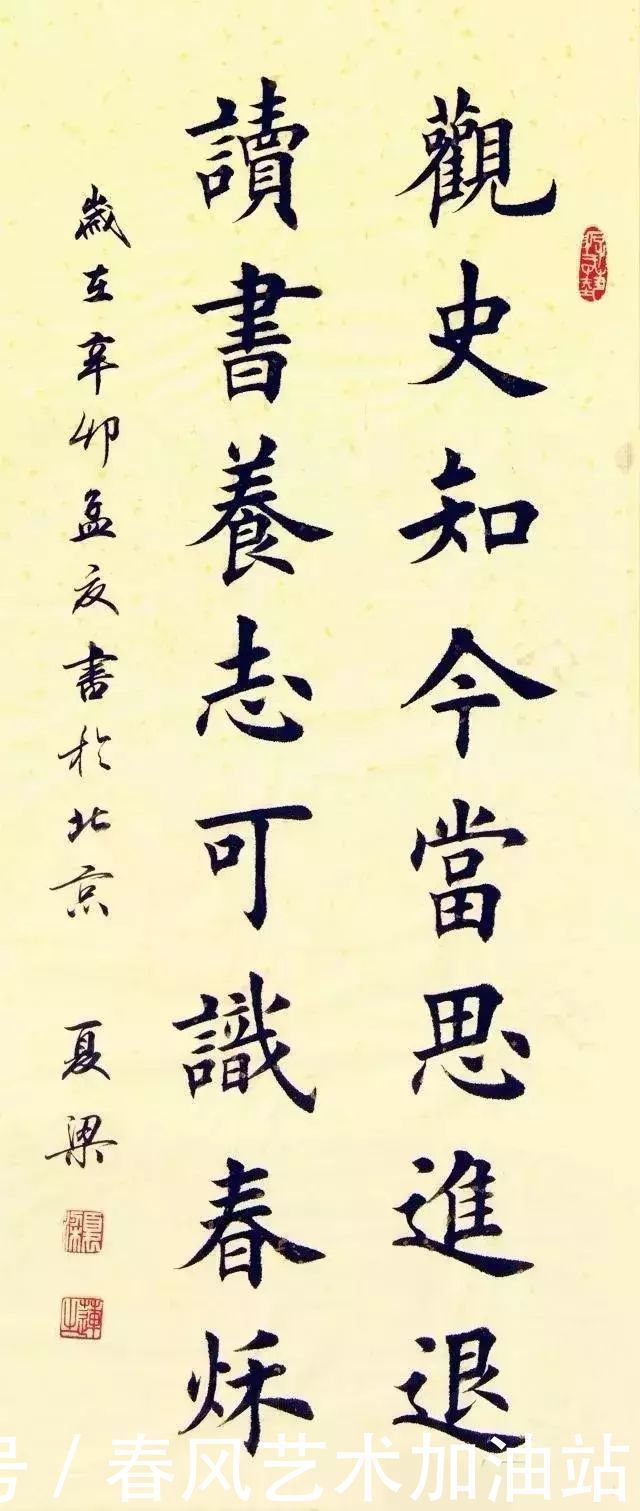 觀史知今當思進退
讀書養志可識春秌
歲在辛卯孟夏書於北京
夏梁
夏梁
号 / 春风艺术加油站